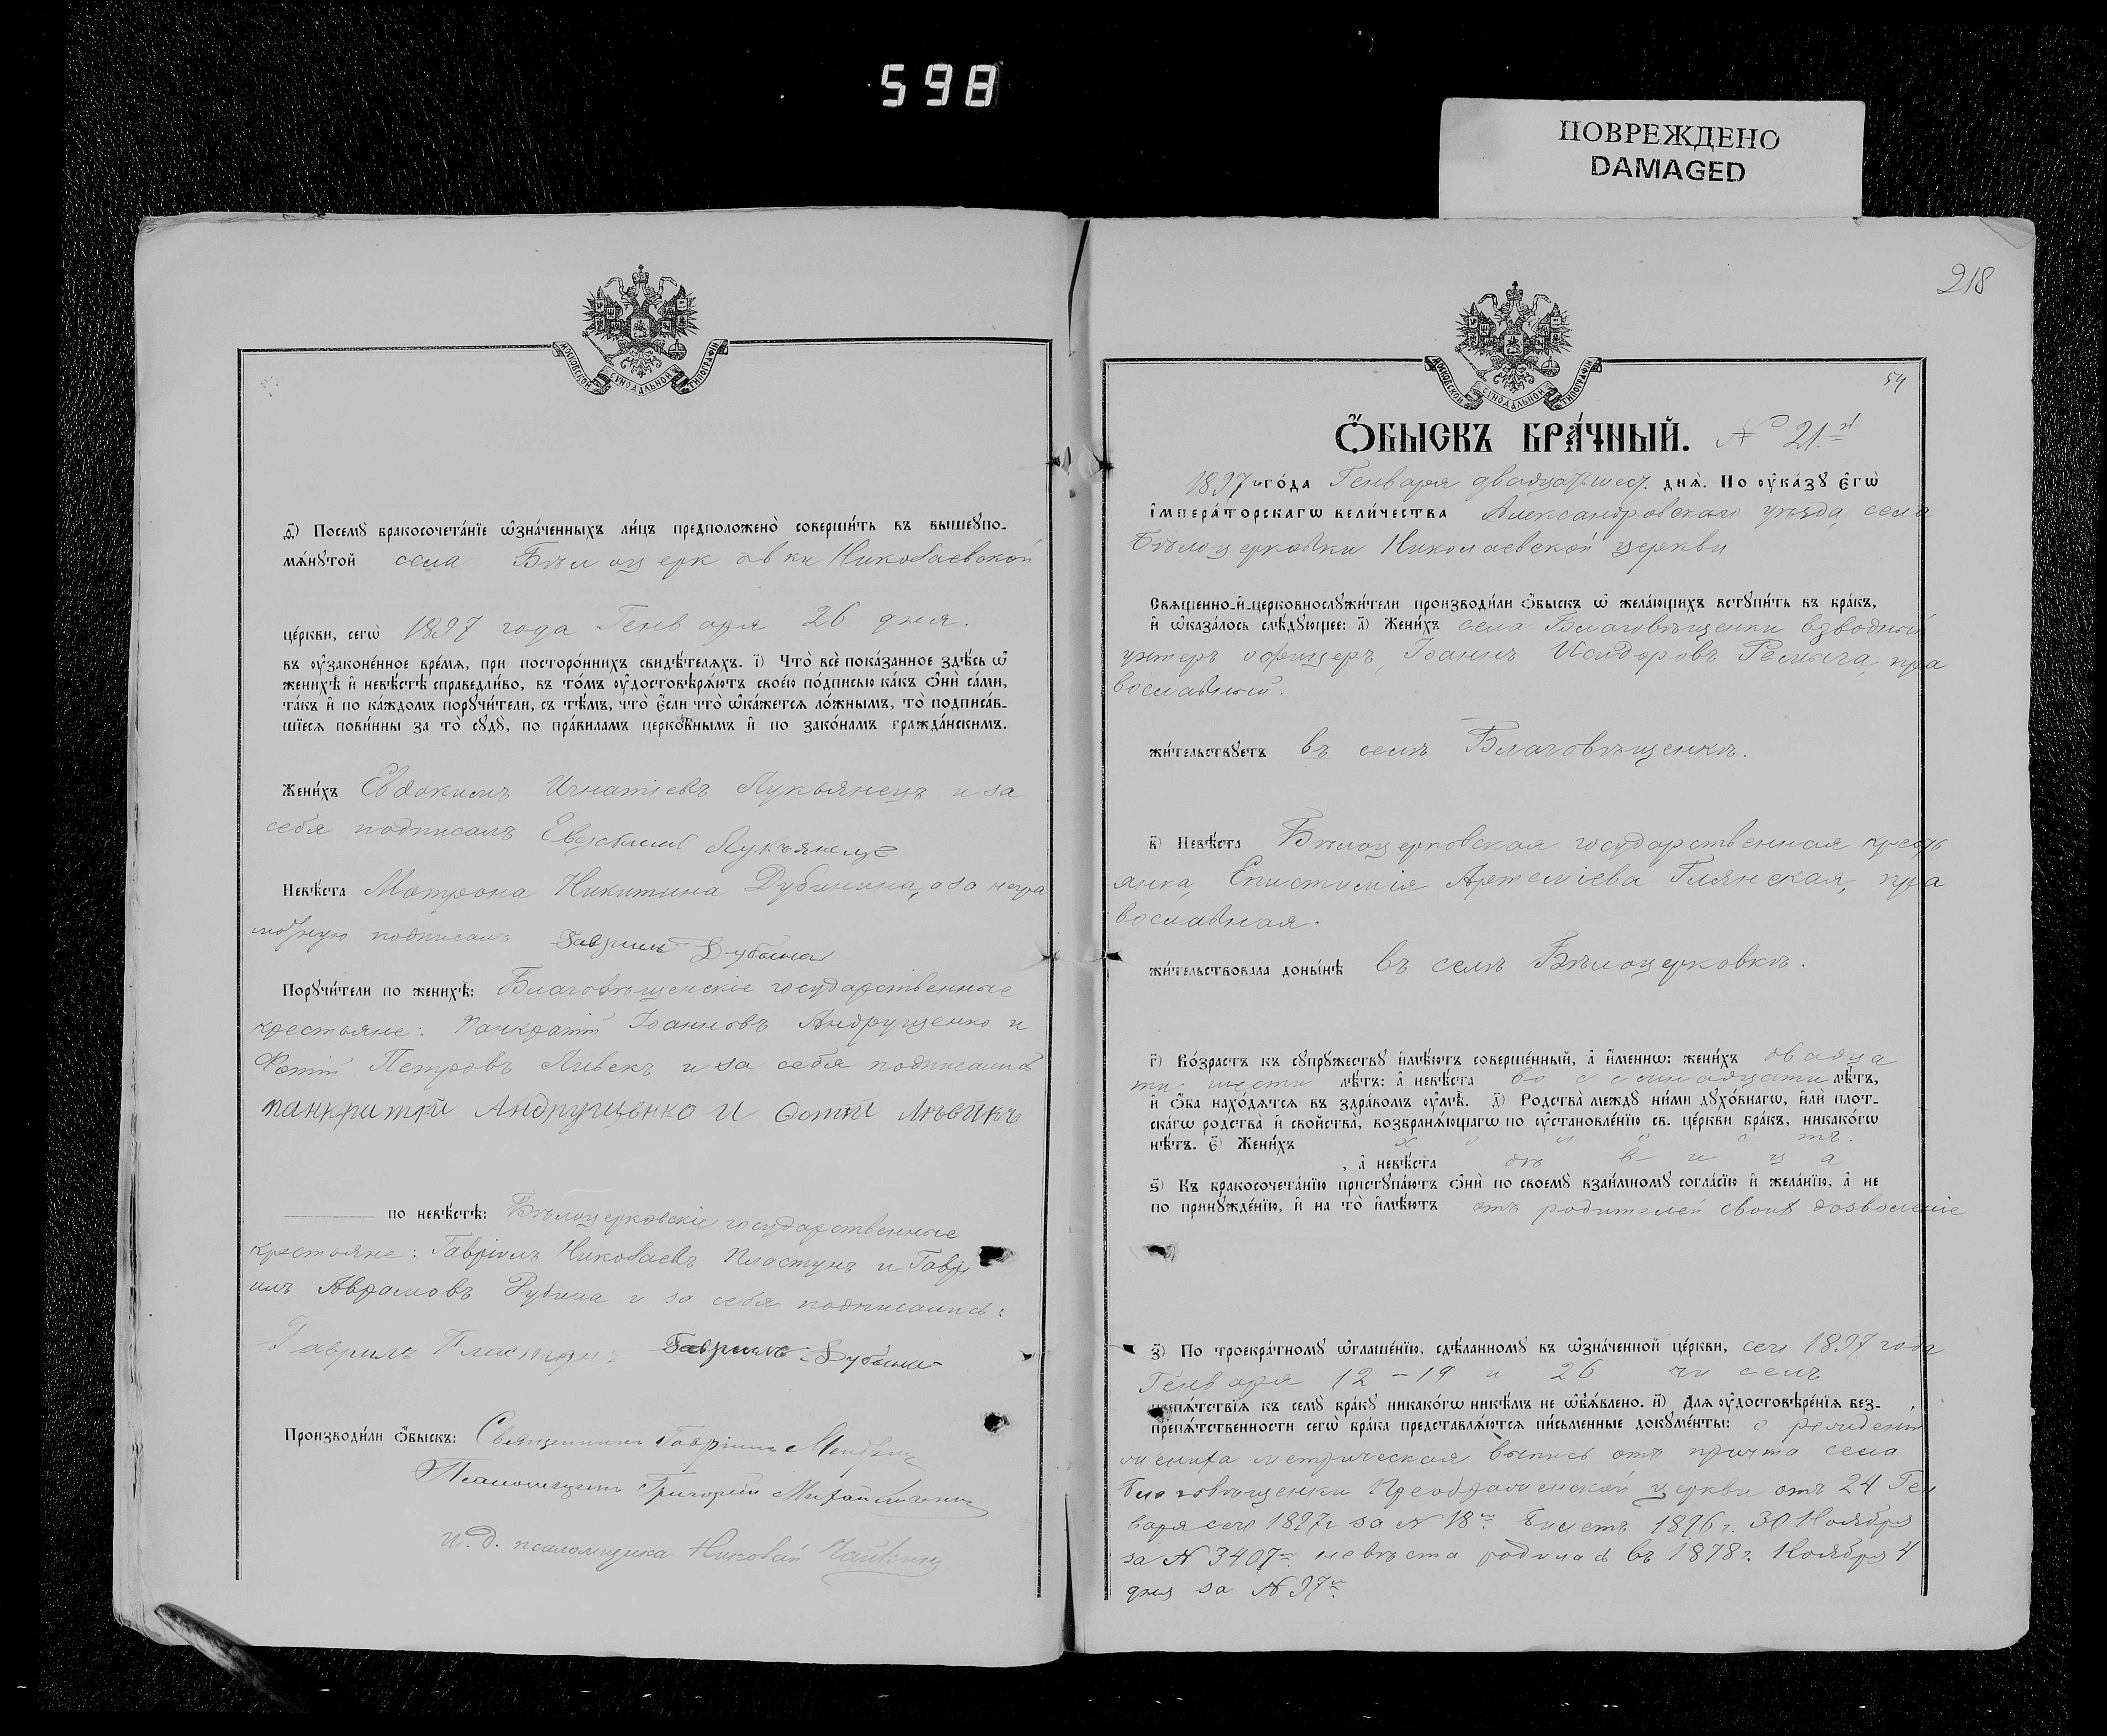 598
ПОВРЕЖДЕНО
DAMAGED
МОСКОВСКОЙ СѴНОДАЛЬНОЙ ТИПОГРАФІИ
ѳ҃) Посемꙋ бракосочета́нїе ѡ҆зна́ченныхъ ли́цъ предположено̀ соверши́ть въ вышеꙋпо-
мѧ́нꙋтой села Бѣлоцерковки Николаевской
це́ркви, сегѡ̀ 1897 года Генваря 26 дня.
въ ᲂу҆законе́нное вре́мѧ, при посторо́ннихъ свидѣ́телѧхъ. і҃) Что̀ всѐ пока́занное здѣ́сь ѡ҆
женихѣ̀ и҆ невѣ́стѣ справедли́во, въ то́мъ ᲂу҆достовѣрѧ́ютъ свое́ю по́дписью ка́къ ѻ҆нѝ са́ми,
та́къ и҆ по ка́ждомъ порꙋчи́тели, съ тѣ́мъ, что̀ є҆́сли что̀ ѡ҆ка́жетсѧ ло́жнымъ, то̀ подписа́в-
шїесѧ пови́нны за то̀ сꙋдꙋ̀, по пра́виламъ церко́внымъ и҆ по зако́намъ гражда́нскимъ.
Жени́хъ Евдокимъ Игнатіевъ Лукьянецъ и за
себя подписалъ Евдокимъ Лукъянецъ
Невѣ́ста Матрона Никитина Дубинина, а за негра
мотную подписалъ Гавриилъ Дубина
Порꙋчи́тели по женихѣ̀: Благовѣщенскіе государственные
крестьяне: Панкратій Іоанновъ Андрущенко и
Фотій Петровъ Ливекъ и за себя подписались
панкратій Андрущенко и Фотий Лѣвикъ
по невѣ́стѣ: Бѣлоцерковскіе государственные
крестьяне: Гавріилъ Николаевъ Пластунъ и Гаврі
илъ Аврамовъ Дубина и за себя подписались:
Гаврилъ Пластунъ Гавриилъ Дубина
Производи́ли ѻ҆́быскъ: Священникъ Гавріилъ
Псаломщикъ Григорій Михайличенко
И. д. псаломщика Николай Чайкинъ
218
МОСКОВСКОЙ СѴНОДАЛЬНОЙ ТИПОГРАФІИ
54
Ѻ҆́быскъ бра́чный. N 21.й
1897 го́да Генваря двадцатьшест. днѧ̀. По ᲂу҆ка́зꙋ є҆гѡ̀
і҆мпера́торскагѡ вели́чества Александровскаго уѣзда, села
Бѣлоцерковки Николаевской церкви
Свѧщенно-и҆-церковнослꙋжи́тели производи́ли ѻ҆́быскъ ѡ҆ жела́ющихъ встꙋпи́ть въ бра́къ,
и҆ ѡ҆каза́лось слѣ́дꙋющее: а҃) Жени́хъ села Благовѣщенки взводный
унтеръ офицеръ, Іоаннъ Исидоровъ Ремыга, пра
вославный.
жи́тельствꙋетъ въ селѣ Благовѣщенкѣ.
в҃) Невѣ́ста Бѣлоцерковская государственная кресть
янка, Епистимія Артеміева Глянская, пра
вославная.
жи́тельствовала доны́нѣ въ селѣ Бѣлоцерковкѣ.
г҃) Во́зрастъ къ сꙋпрꙋ́жествꙋ и҆мѣ́ютъ соверше́нный, а҆ и҆́меннѡ: жени́хъ двадца
ти шести лѣ́тъ: а҆ невѣ́ста восемнадцати лѣ́тъ,
и҆ ѻ҆́ба нахо́дѧтсѧ въ здра́вомъ ᲂу҆мѣ̀. д҃) Родства̀ междꙋ̀ ни́ми дꙋхо́внагѡ, и҆лѝ пло́т-
скагѡ родства̀ и҆ сво́йства̀, возбранѧ́ющагѡ по ᲂу҆становле́нїю св. це́ркви бра́къ, никако́гѡ
нѣ́тъ. є҃) Жени́хъ холостъ.
, а҆ невѣ́ста дѣвица
ѕ҃) Къ бракосочета́нїю пристꙋпа́ютъ ѻ҆нѝ по своемꙋ̀ взаи́мномꙋ согла́сїю и҆ жела́нїю, а҆ не
по принꙋжде́нїю, и҆ на то̀ и҆мѣ́ютъ отъ родителей своихъ дозволеніе
з҃) По троекра́тномꙋ ѡ҆глаше́нїю, сдѣ́ланномꙋ въ ѡ҆зна́ченной це́ркви, сего 1897 года
Генваря 12 - 19 и 26 чиселъ
препѧ́тствїѧ къ семꙋ̀ бра́кꙋ никако́гѡ никѣ́мъ не ѡ҆б̾ѧ́влено. и҃) Длѧ ᲂу҆достовѣре́нїѧ без-
препѧ́тственности сегѡ̀ бра́ка представлѧ́ютсѧ пи́сьменные докꙋме́нты: о рожденіи
жениха метрическая выпись отъ причта села
Благовѣщенки Преображенской церкви отъ 24 Ген
варя сего 1897 г. за N 18м. Билетъ 1896 г. 30 Ноября
за N 3407м. невѣста родилась въ 1878 г. Ноября 4
дня за N 97м.